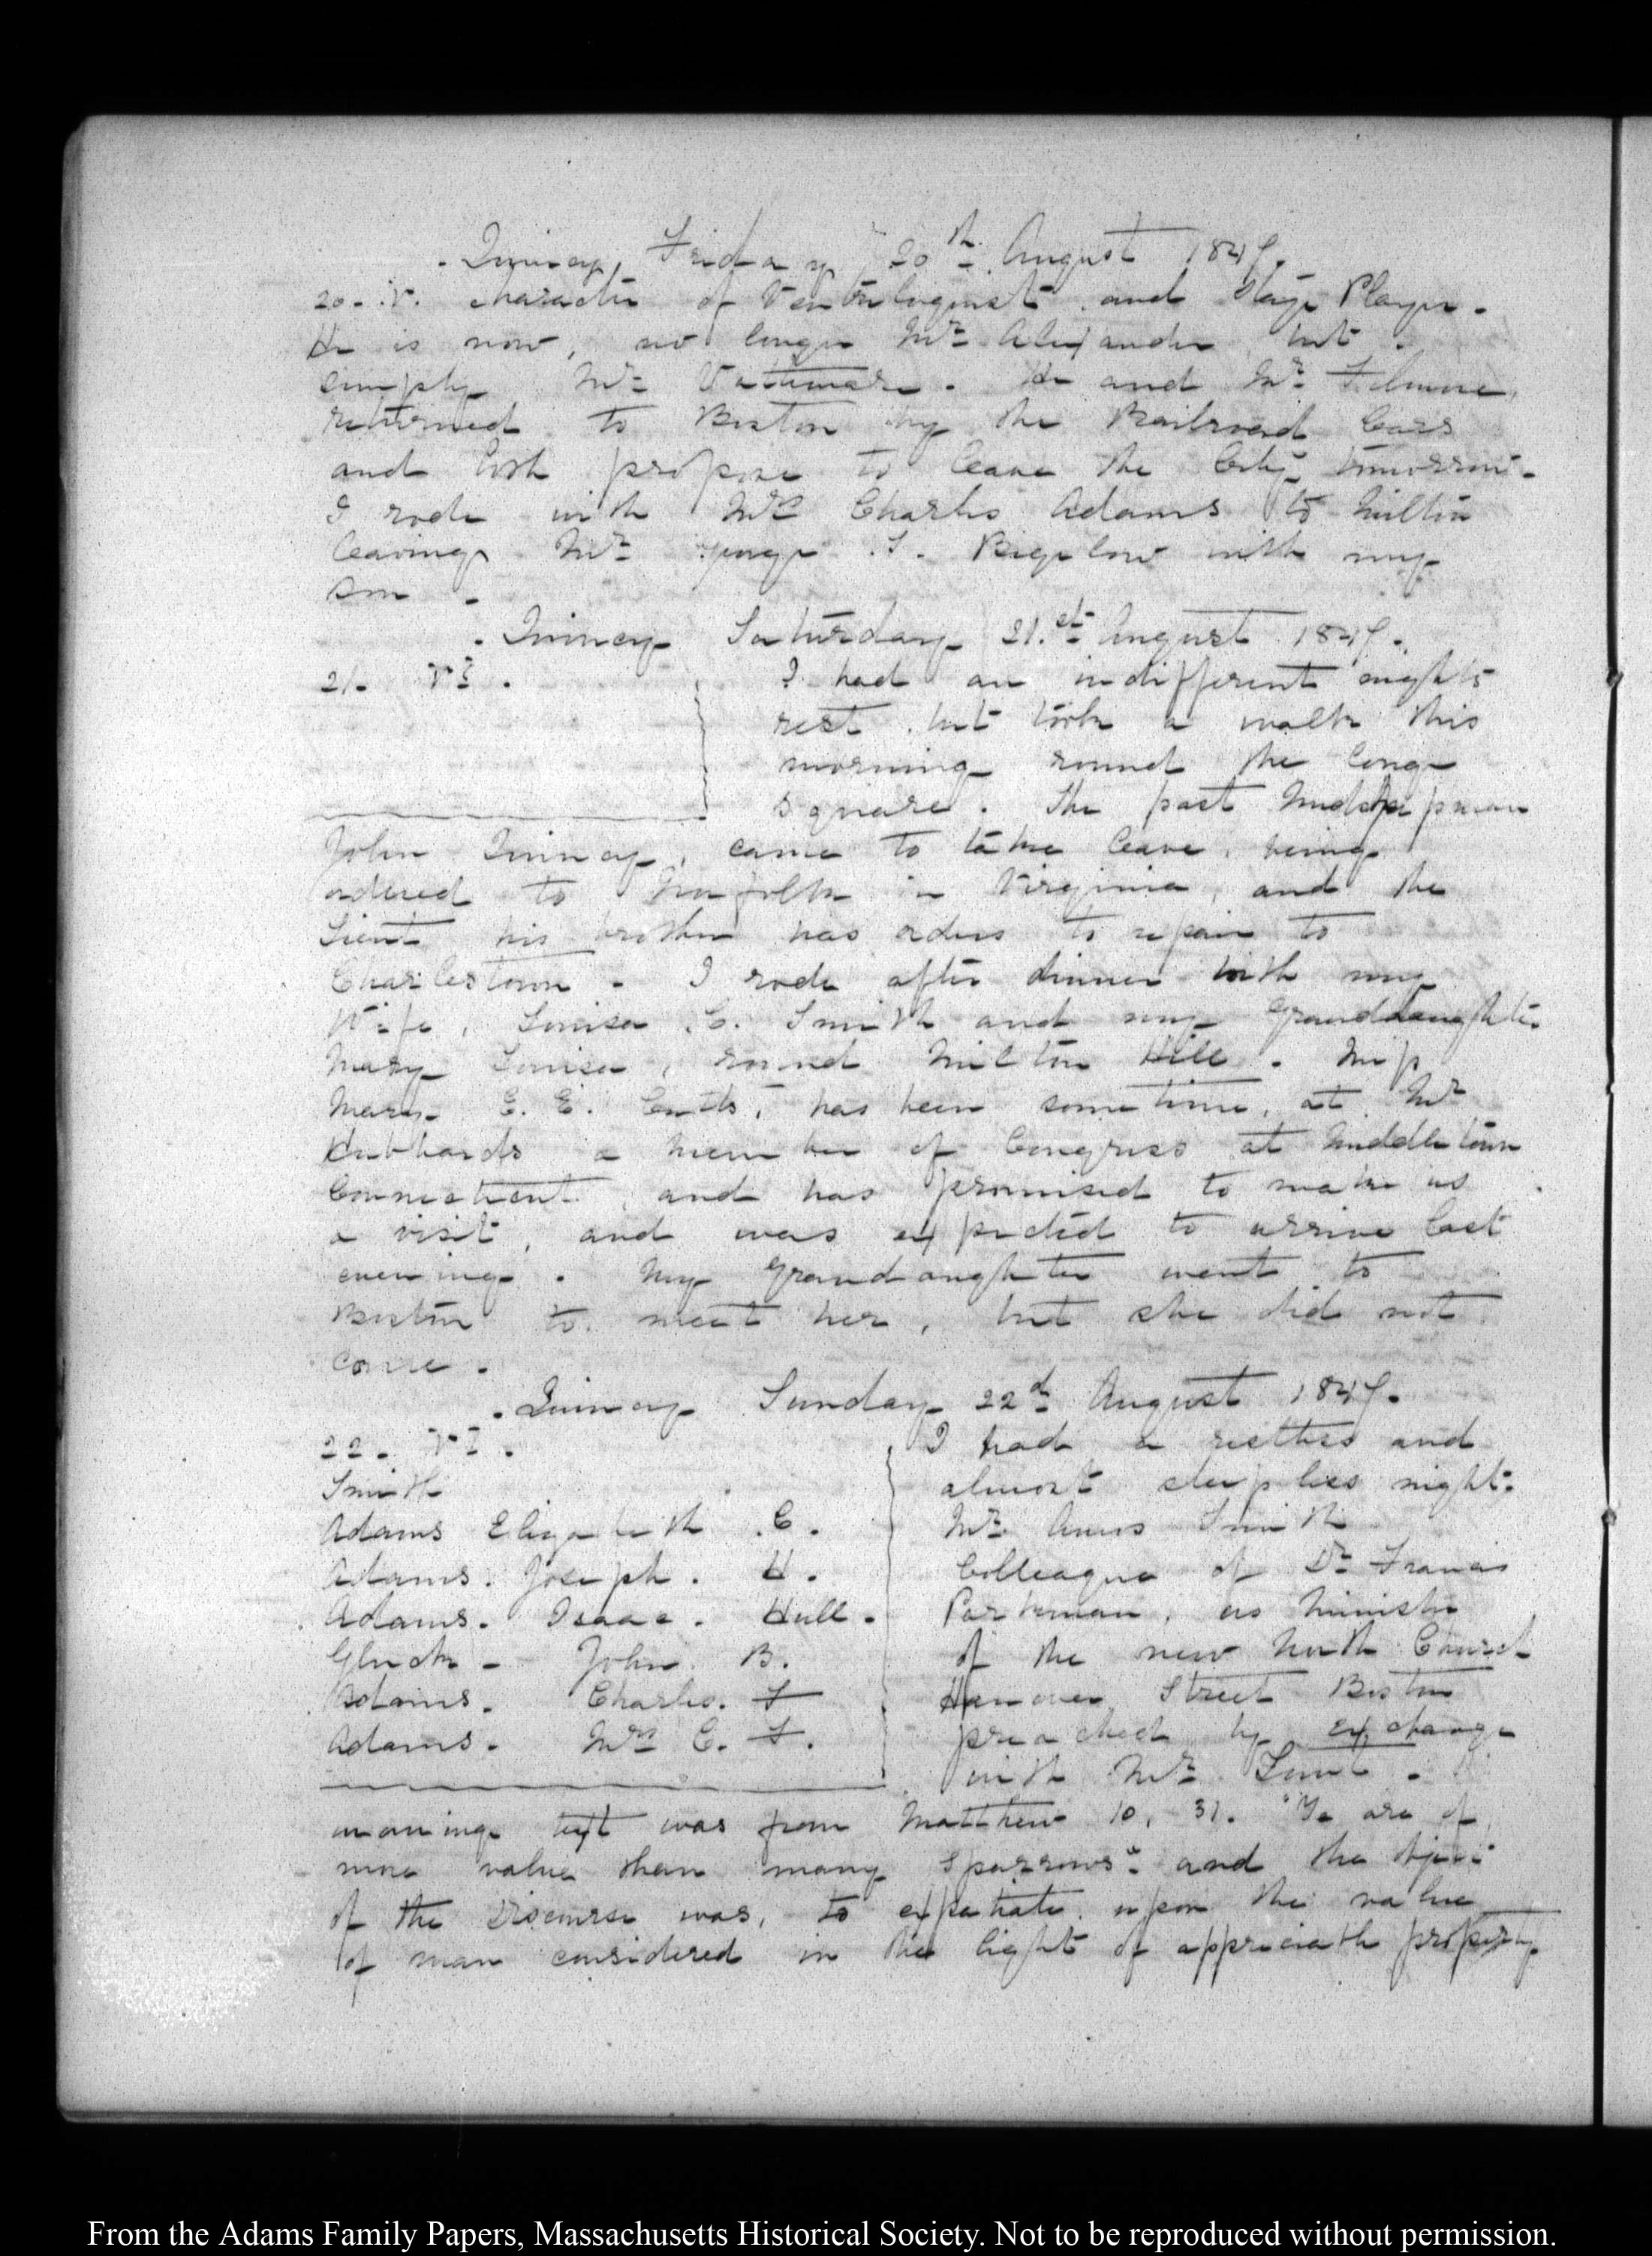 Quincy, Friday 20th. August 1847.
20. V. character of Ventriloquist and Stage Player.
He is now, no longer Mr. Alexander but
simply Mr. Vattemare. He and Mr.
returned to Boston by the Railroad Cars
and both propose to leave the City tomorrow.
I rode with Mrs Charles Adams to Milton
leaving Mr. George T. Bigelow with my
son.
Quincy Saturday 21.st August 1847.
21. VI. I had an indifferent night's
rest, but took a walk this
morning round the long
square. The past Midshipman
John Quincy, came to take leave, being
ordered to Norfolk in Virginia, and the
Lieut his brother has orders to repair to
Charlestown. I rode after dinner with my
Wife, Louisa C. Smith and my Granddaughter
Mary Louisa, round Milton Hill. Miss
Mary E. E. Cutts, has been some time, at Mr
Hubbards a member of Congress at Middletown
Connecticut, and has promised to make us
a visit, and was expected to arrive last
evening. My Grandaughter went to
Boston to meet her, but she did not
come.
Quincy Sunday 22d August 1847.
22. VI.
Smith
Adams Elizabeth C.
Adams. Joseph. H.
Adams. Isaac. Hull.
John B.
Adams. Charles. F
Adams. Mrs C. F.
I had a restless and
almost sleepless night.
Mr. Amos Smith
Colleague of Dr. Francis
Parkman, as Minister
of the new North Church
Hanover Street Boston
preached by exchange
with Mr. Lunt.
morning text was from Matthew 10, 31. "Ye are of
more value than many Sparrows" and the object
of the Discourse was, to expatiate upon the value
of man considered in the light of property